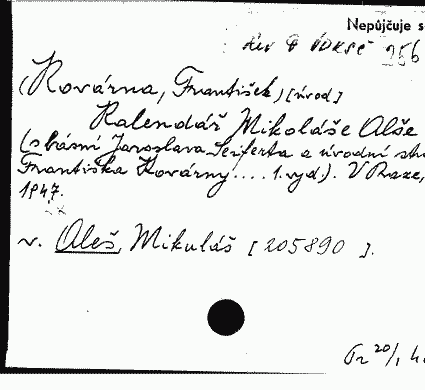 Nepůjčuje s
256
(Kovárna, František) [úvod]
Kalendář Mikoláše Alše
(s básní Jaroslava Seiferta a úvodní stu
Františka Kovárny .... 1. vyd.). V Praze,
1947.
v. Aleš, Mikuláš [205890].
20/1